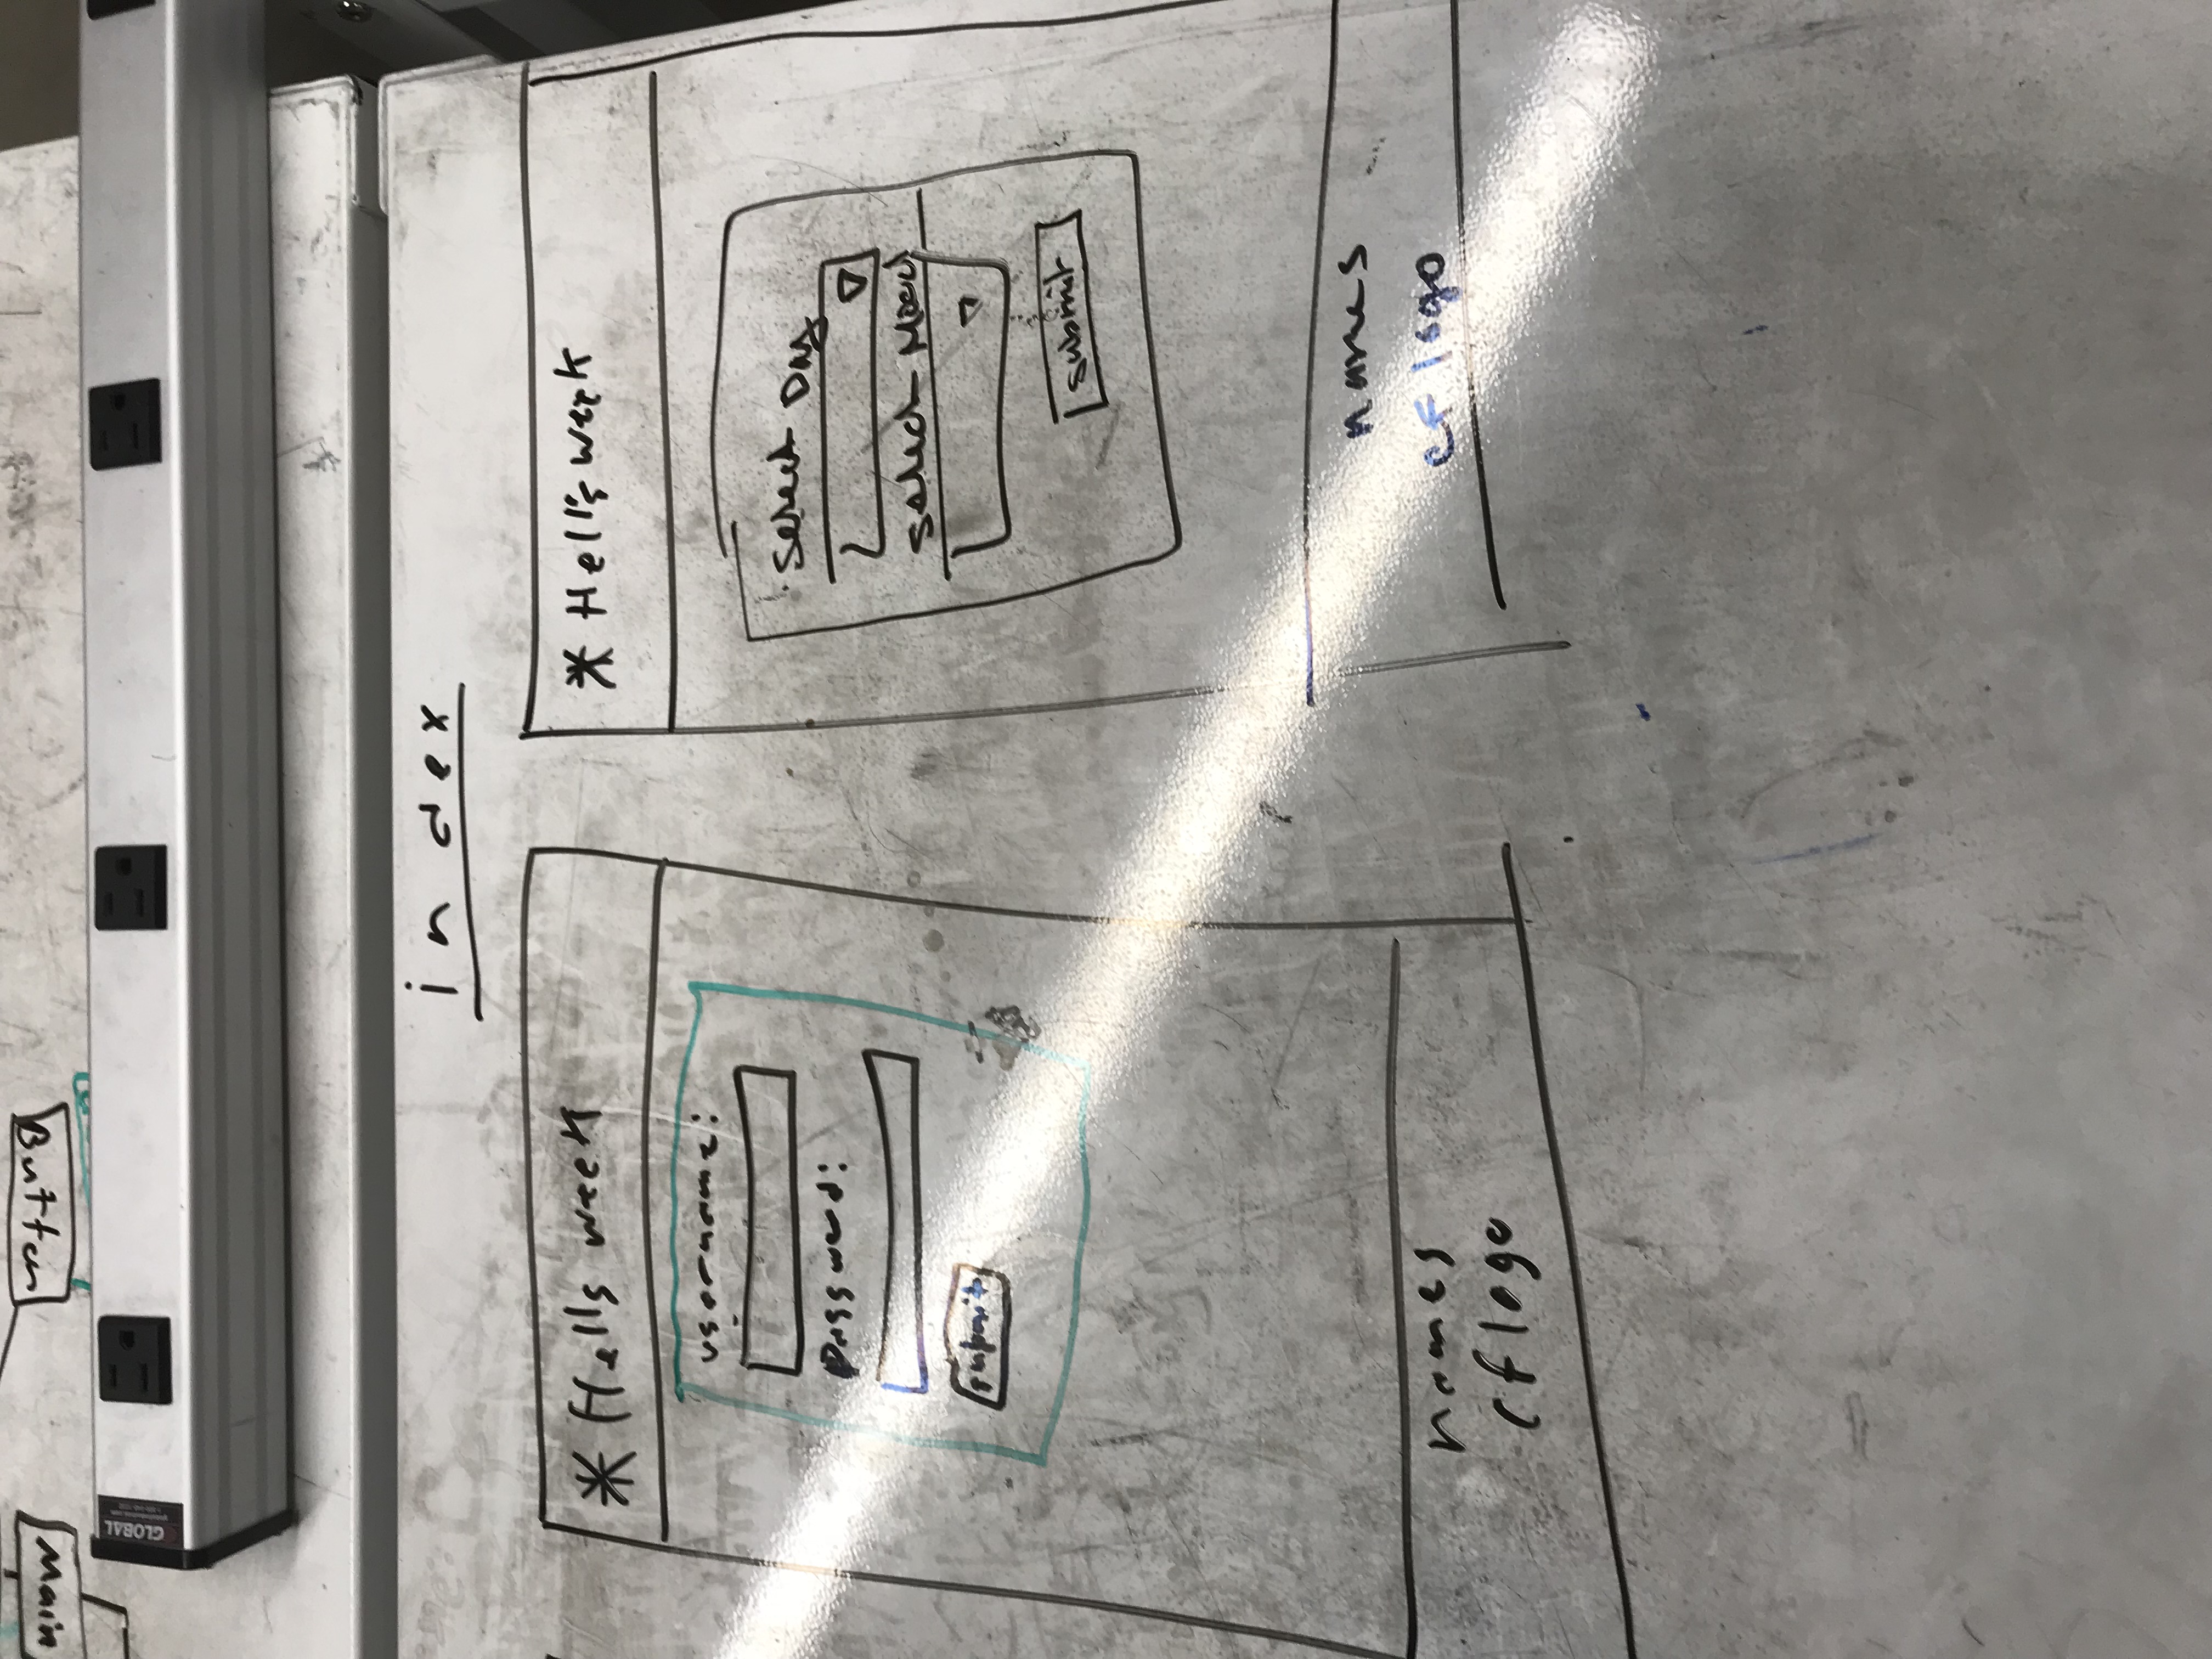 Main
Button
GLOBAL
index
* Hells week
username:
password:
submit
names
cf logo
* Hell's week
Select Day
Select Mood
submit
names
cf logo